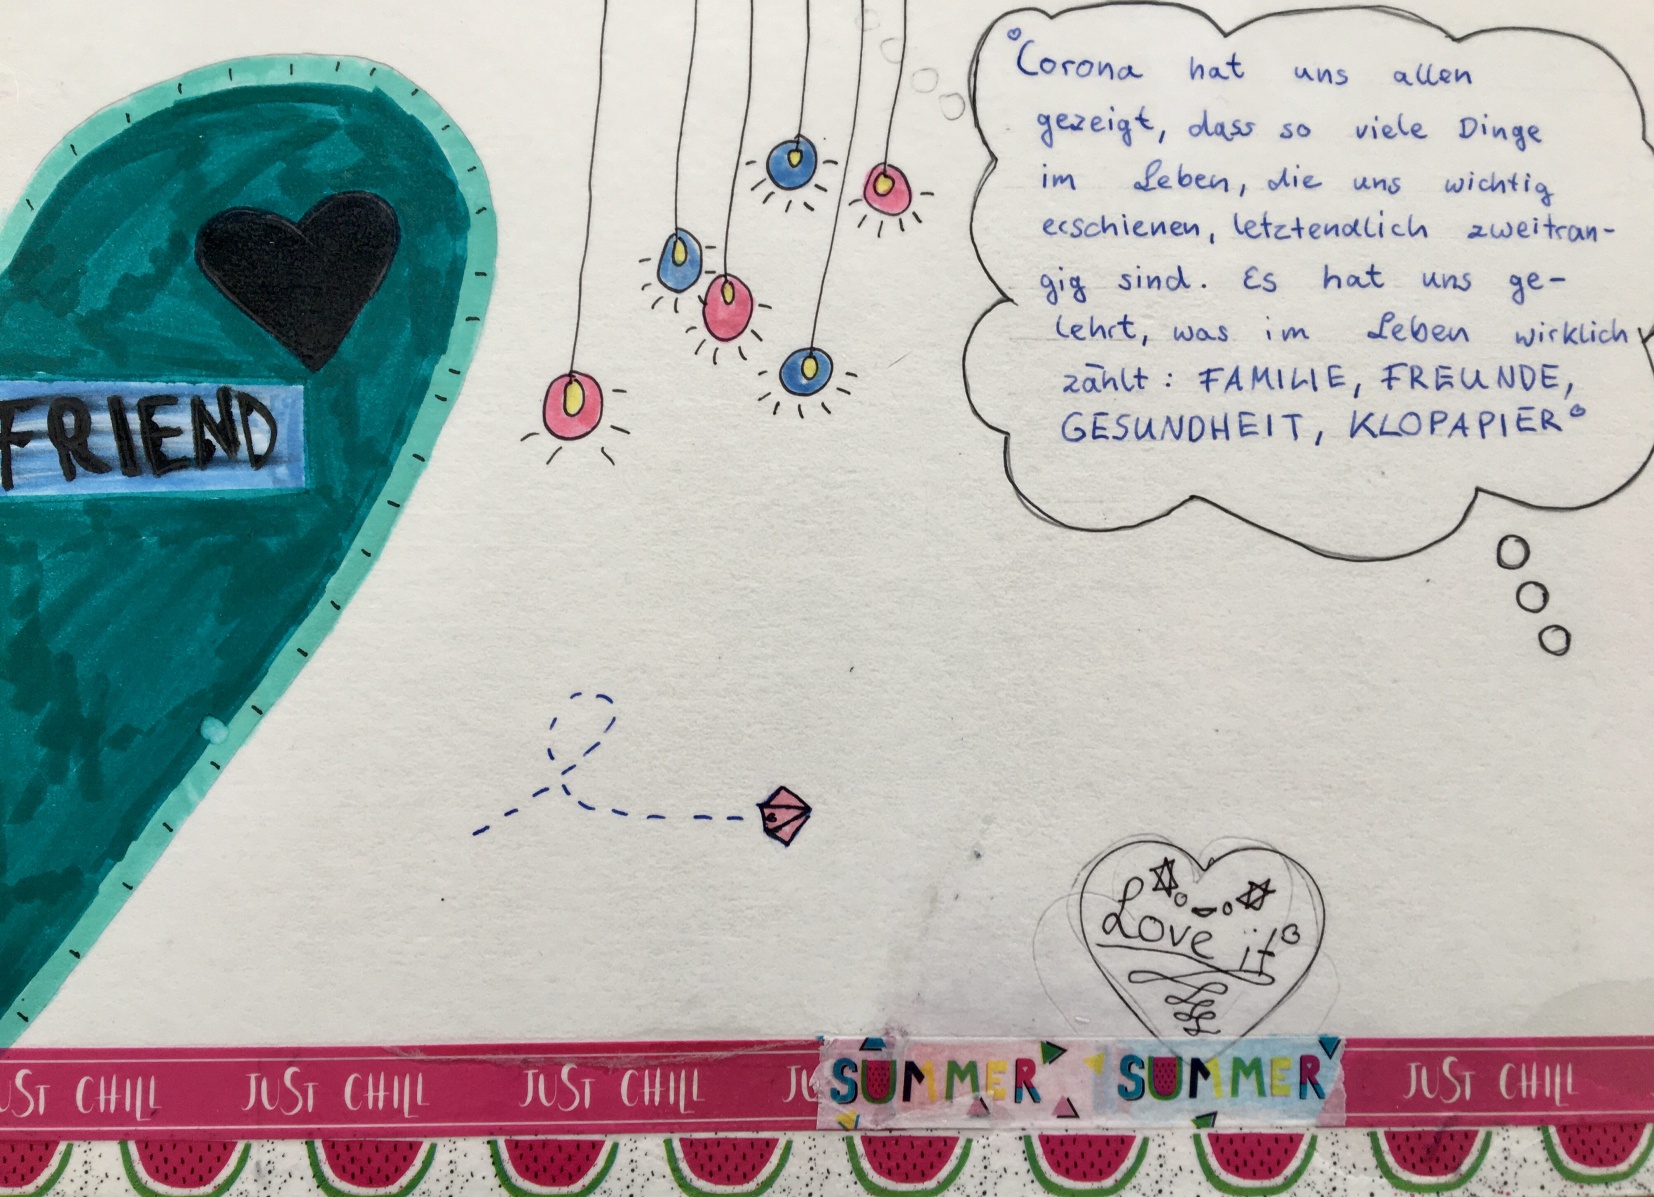 °Corona hat uns allen
gezeigt, dass so viele Dinge
im Leben, die uns wichtig
erschienen, letztendlich zweitran-
gig sind. Es hat uns ge-
lehrt, was im Leben wirklich
zählt: FAMILIE, FREUNDE,
GESUNDHEIT, KLOPAPIER°
FRIEND
Love it
UST CHILL JUST CHILL JUST CHILL JU SUMMER SUMMER JUST CHILL